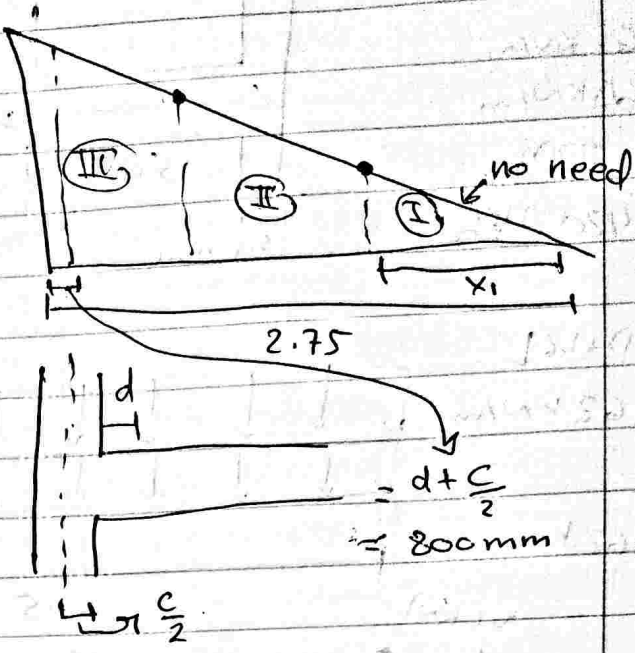 III
II
I
no need
x₁
2.75
d
= d + c/2
= 800 mm
c/2